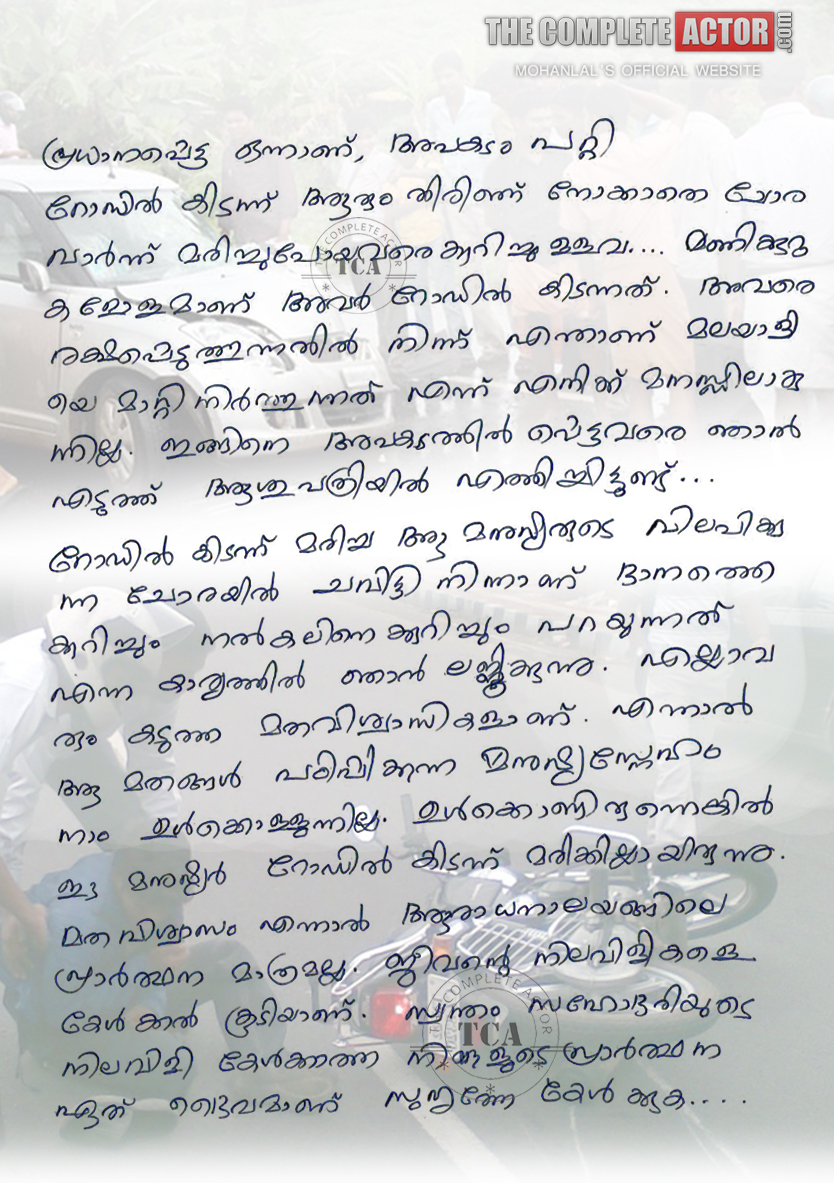 THE COMPLETE ACTOR.com
MOHANLAL'S OFFICIAL WEBSITE
പ്രധാനപ്പെട്ട ഒന്നാണ്, അപകടം പറ്റി
റോഡിൽ കിടന്ന് ആരും തിരിഞ്ഞ് നോക്കാതെ ചോര
വാർന്ന് മരിച്ചുപോയവരെക്കുറിച്ചുള്ളവ.... മണിക്കൂറു
കളോളമാണ് അവർ റോഡിൽ കിടന്നത്. അവരെ
രക്ഷപ്പെടുത്തുന്നതിൽ നിന്ന് എന്താണ് മലയാളി
യെ മാറ്റി നിർത്തുന്നത് എന്ന് എനിക്ക് മനസ്സിലാകു
ന്നില്ല. ഇങ്ങിനെ അപകടത്തിൽ പ്പെട്ടവരെ ഞാൻ
എടുത്ത് ആശുപത്രിയിൽ എത്തിച്ചിട്ടുണ്ട്...
റോഡിൽ കിടന്ന് മരിച്ച ആ മനുഷ്യരുടെ വിലപിക്കു
ന്ന ചോരയിൽ ചവിട്ടി നിന്നാണ് ദാനത്തെ
ക്കുറിച്ചും നൽകലിനെക്കുറിച്ചും പറയുന്നത്
എന്ന കാര്യത്തിൽ ഞാൻ ലജ്ജിക്കുന്നു. എല്ലാവ
രും കടുത്ത മതവിശ്വാസികളാണ്. എന്നാൽ
ആ മതങ്ങൾ പഠിപ്പിക്കുന്ന മനുഷ്യസ്നേഹം
നാം ഉൾക്കൊള്ളുന്നില്ല. ഉൾക്കൊണ്ടിരുന്നെങ്കിൽ
ഈ മനുഷ്യർ റോഡിൽ കിടന്ന് മരിക്കില്ലായിരുന്നു.
മതവിശ്വാസം എന്നാൽ ആരാധനാലയങ്ങിലെ
പ്രാർത്ഥന മാത്രമല്ല. ജീവന്റെ നിലവിളികളെ
കേൾക്കൽ കൂടിയാണ്. സ്വന്തം സഹോദരിയുടെ
നിലവിളി കേൾക്കാത്ത നിങ്ങളുടെ പ്രാർത്ഥന
ഏത് ദൈവമാണ് സുഹൃത്തേ കേൾക്കുക....
THE COMPLETE ACTOR
TCA
THE COMPLETE ACTOR
TCA